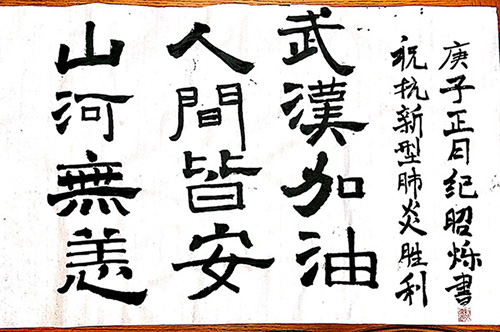 武漢加油
人間皆安
山河無恙
庚子正月纪昭烁書
祝抗新型肺炎胜利